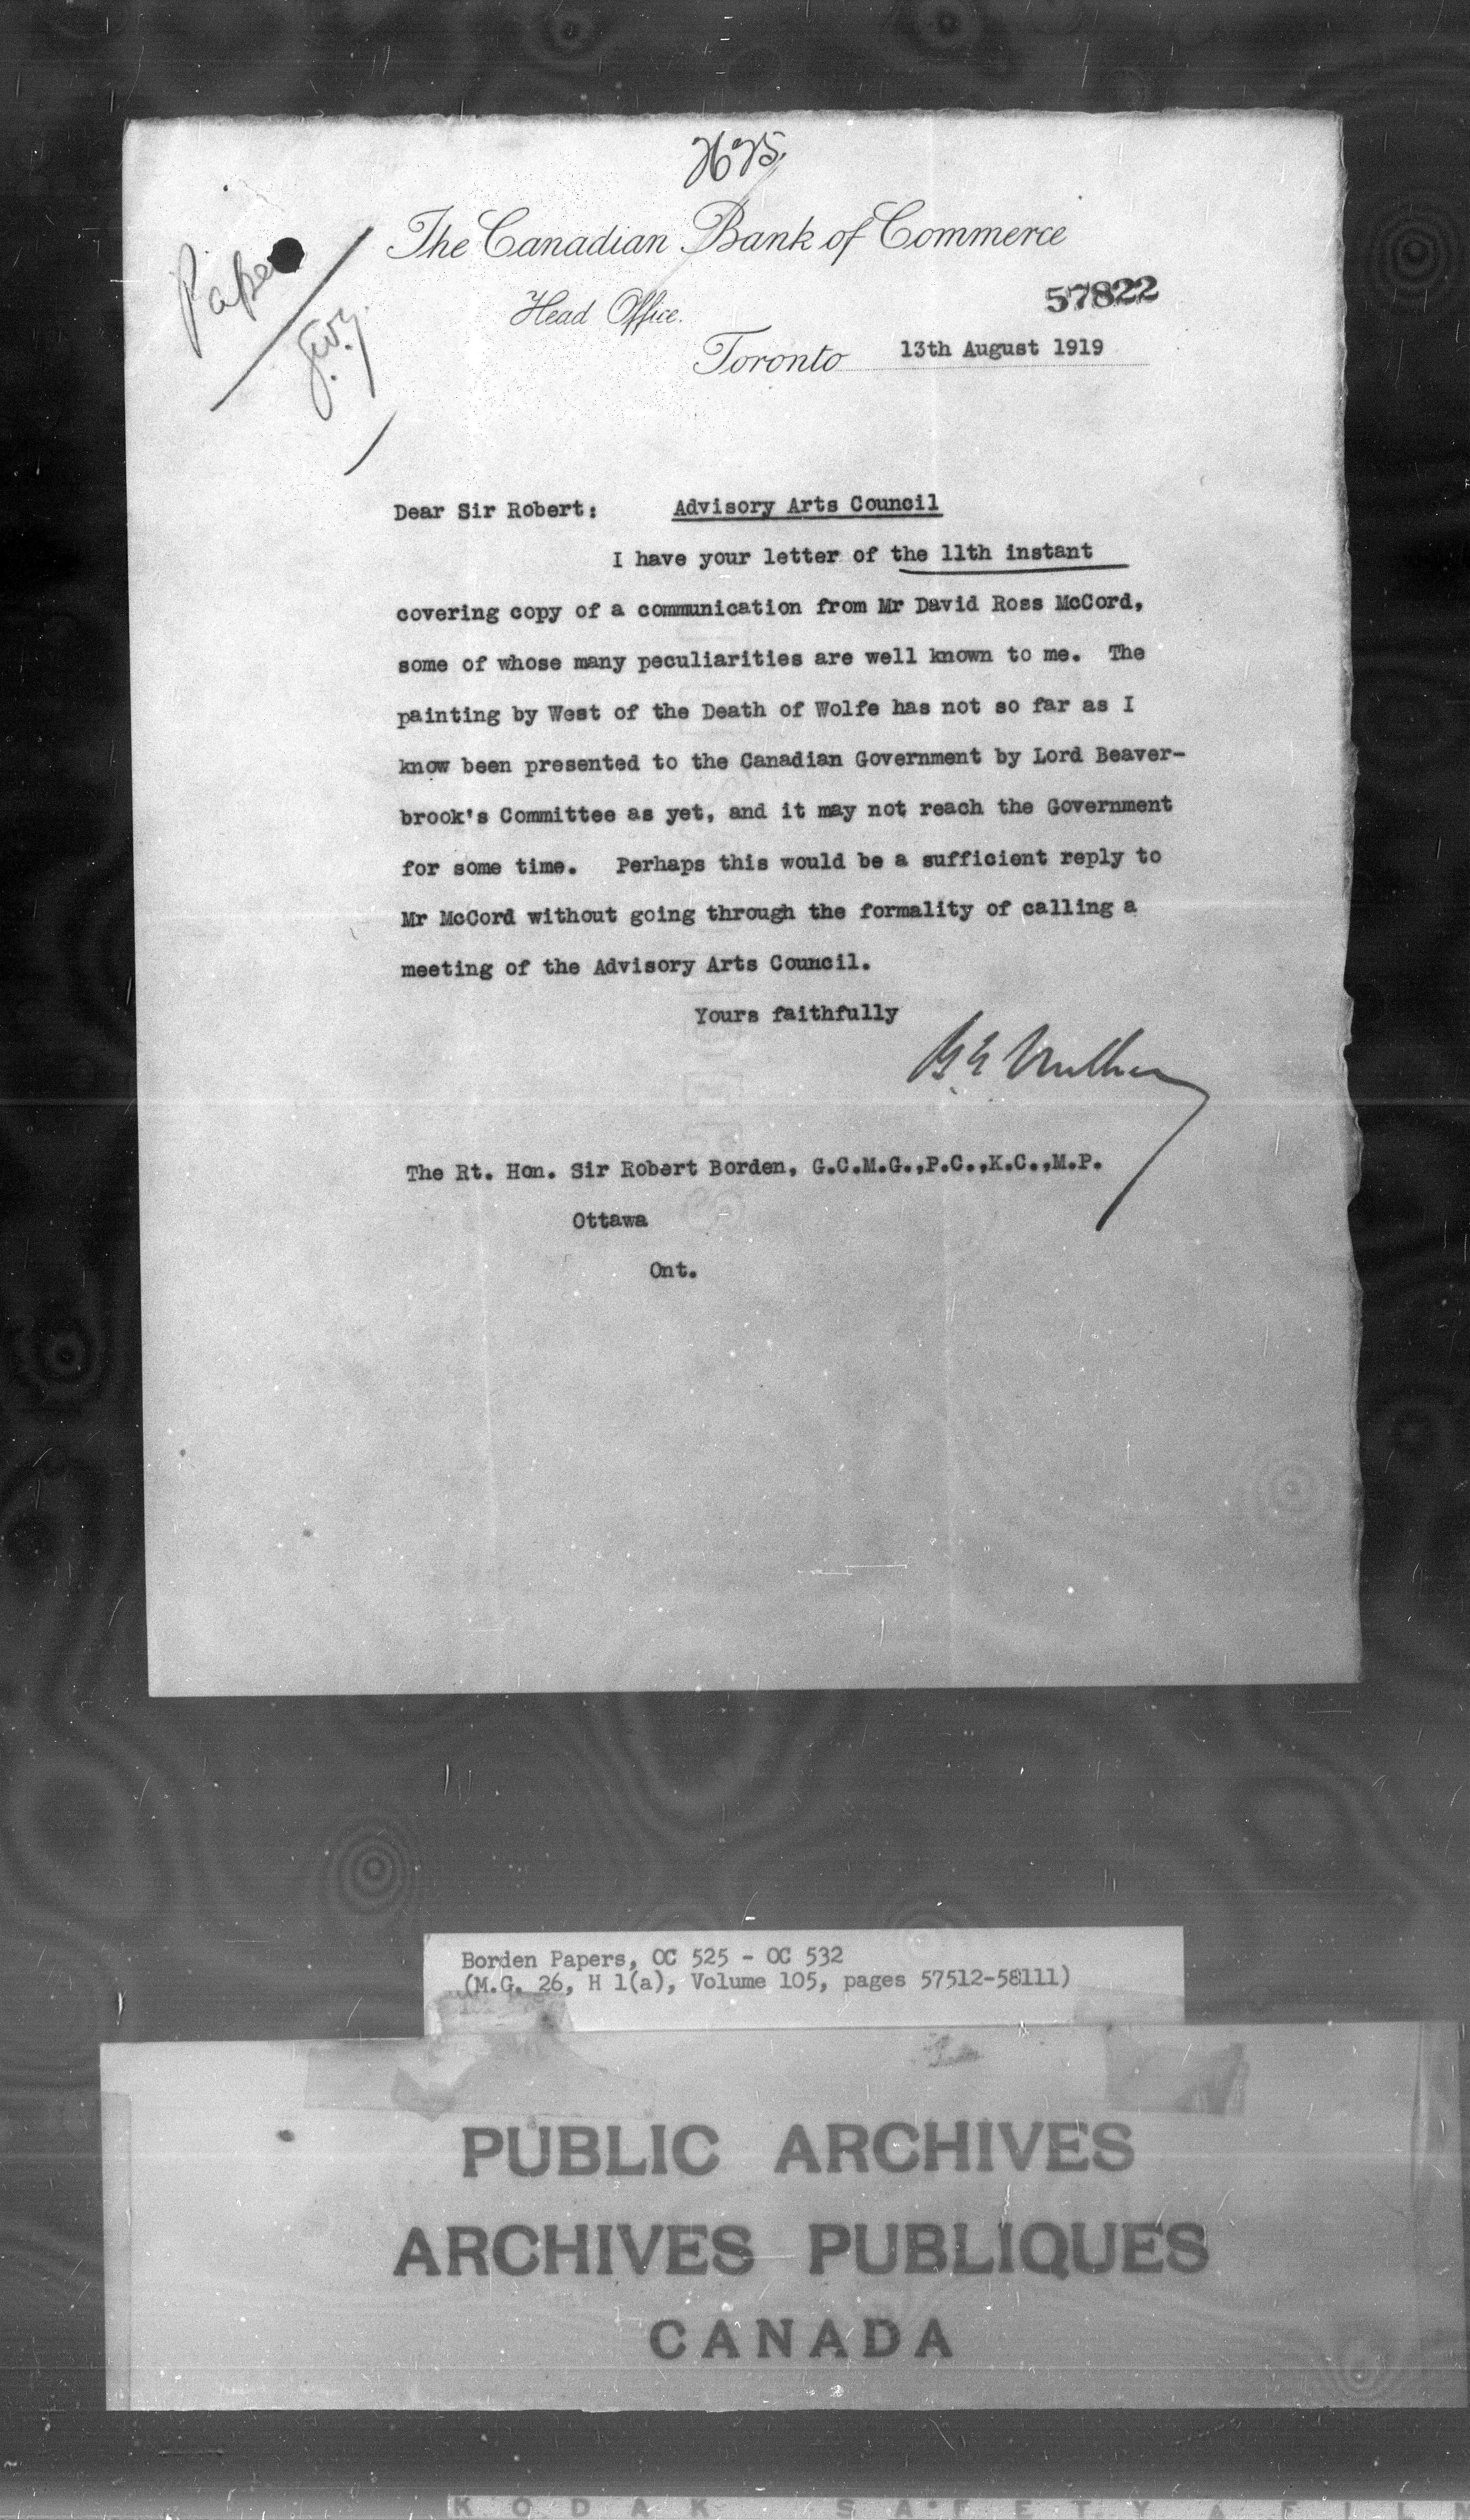 The Canadian Bank of Commerce
57822
Head Office.
Toronto 13th August 1919
Dear Sir Robert: Advisory Arts Council
I have your letter of the 11th instant
covering copy of a communication from Mr David Ross McCord,
some of whose many peculiarities are well known to me. The
painting by West of the Death of Wolfe has not so far as I
know been presented to the Canadian Government by Lord Beaver-
brook's Committee as yet, and it may not reach the Government
for some time. Perhaps this would be a sufficient reply to
Mr McCord without going through the formality of calling a
meeting of the Advisory Arts Council.
Yours faithfully
The Rt. Hon. Sir Robert Borden, G.C.M.G.,P.C.,K.C.,M.P.
Ottawa
Ont.
Borden Papers, OC 525 - OC 532
(M.G. 26, H 1(a), Volume 105, pages 57512-58111)
PUBLIC ARCHIVES
ARCHIVES PUBLIQUES
CANADA
KODAK SAFETY